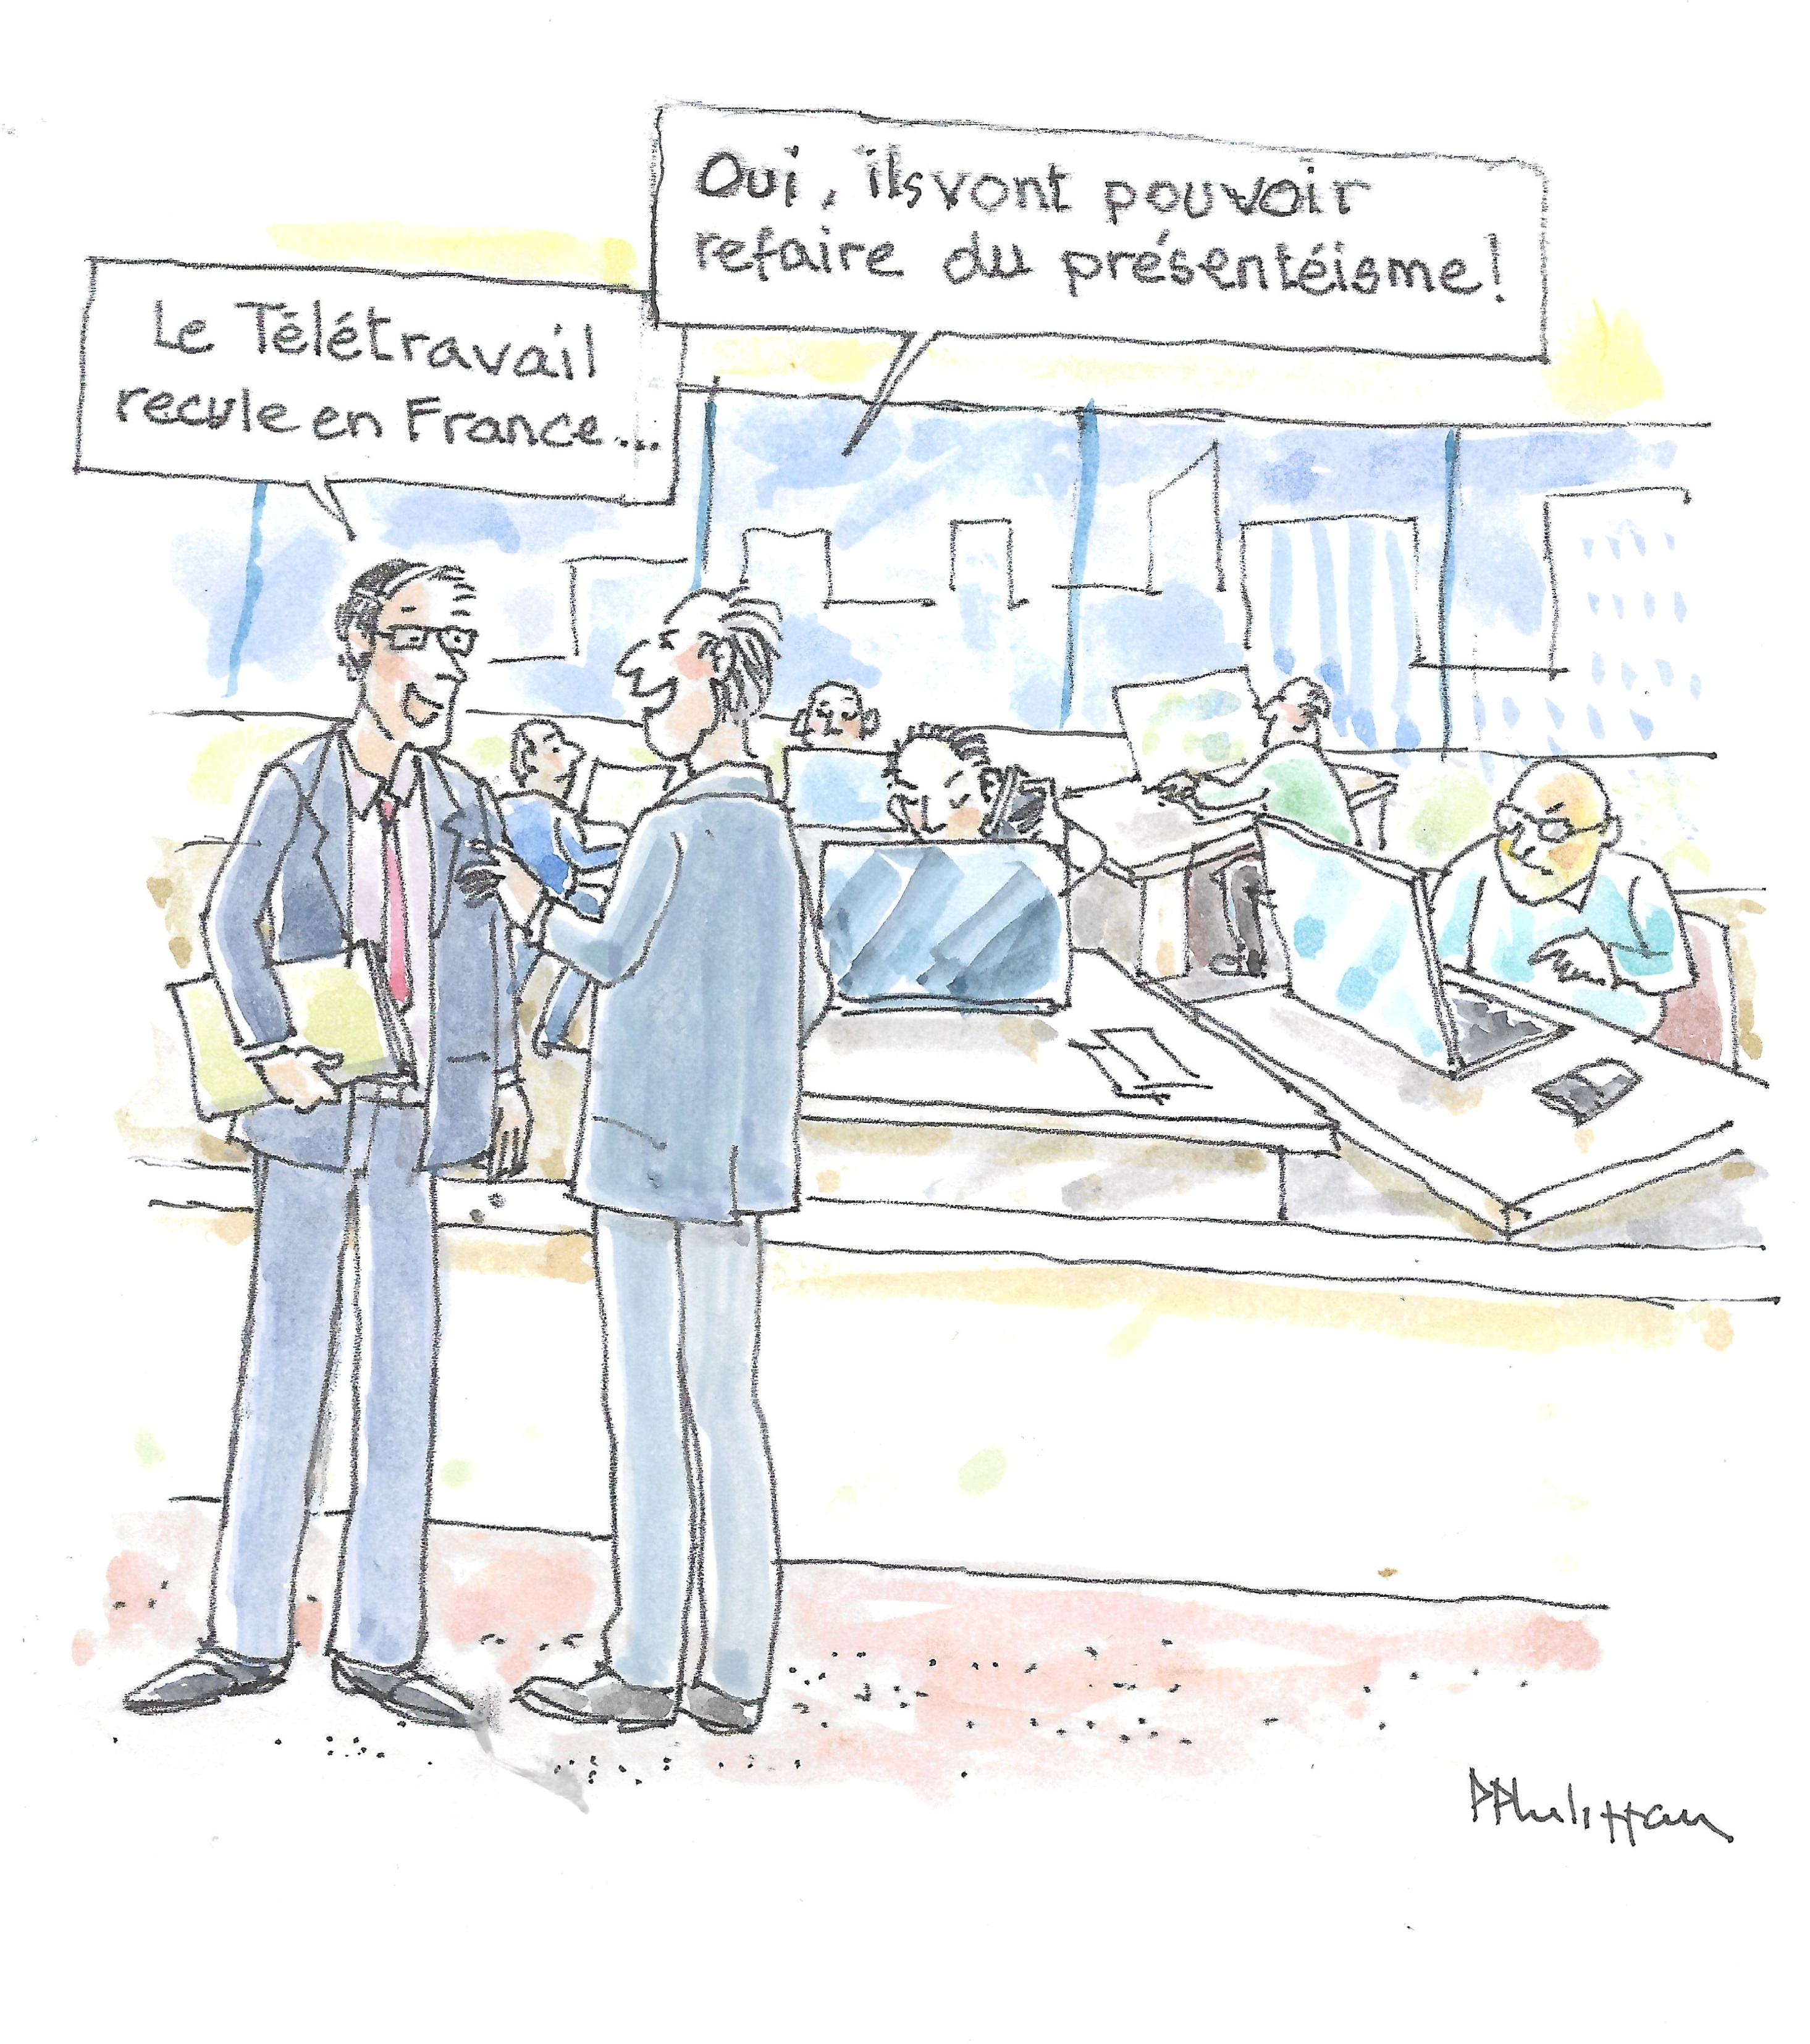 Le Télétravail
recule en France...
Oui, ils vont pouvoir
refaire du présentéisme!